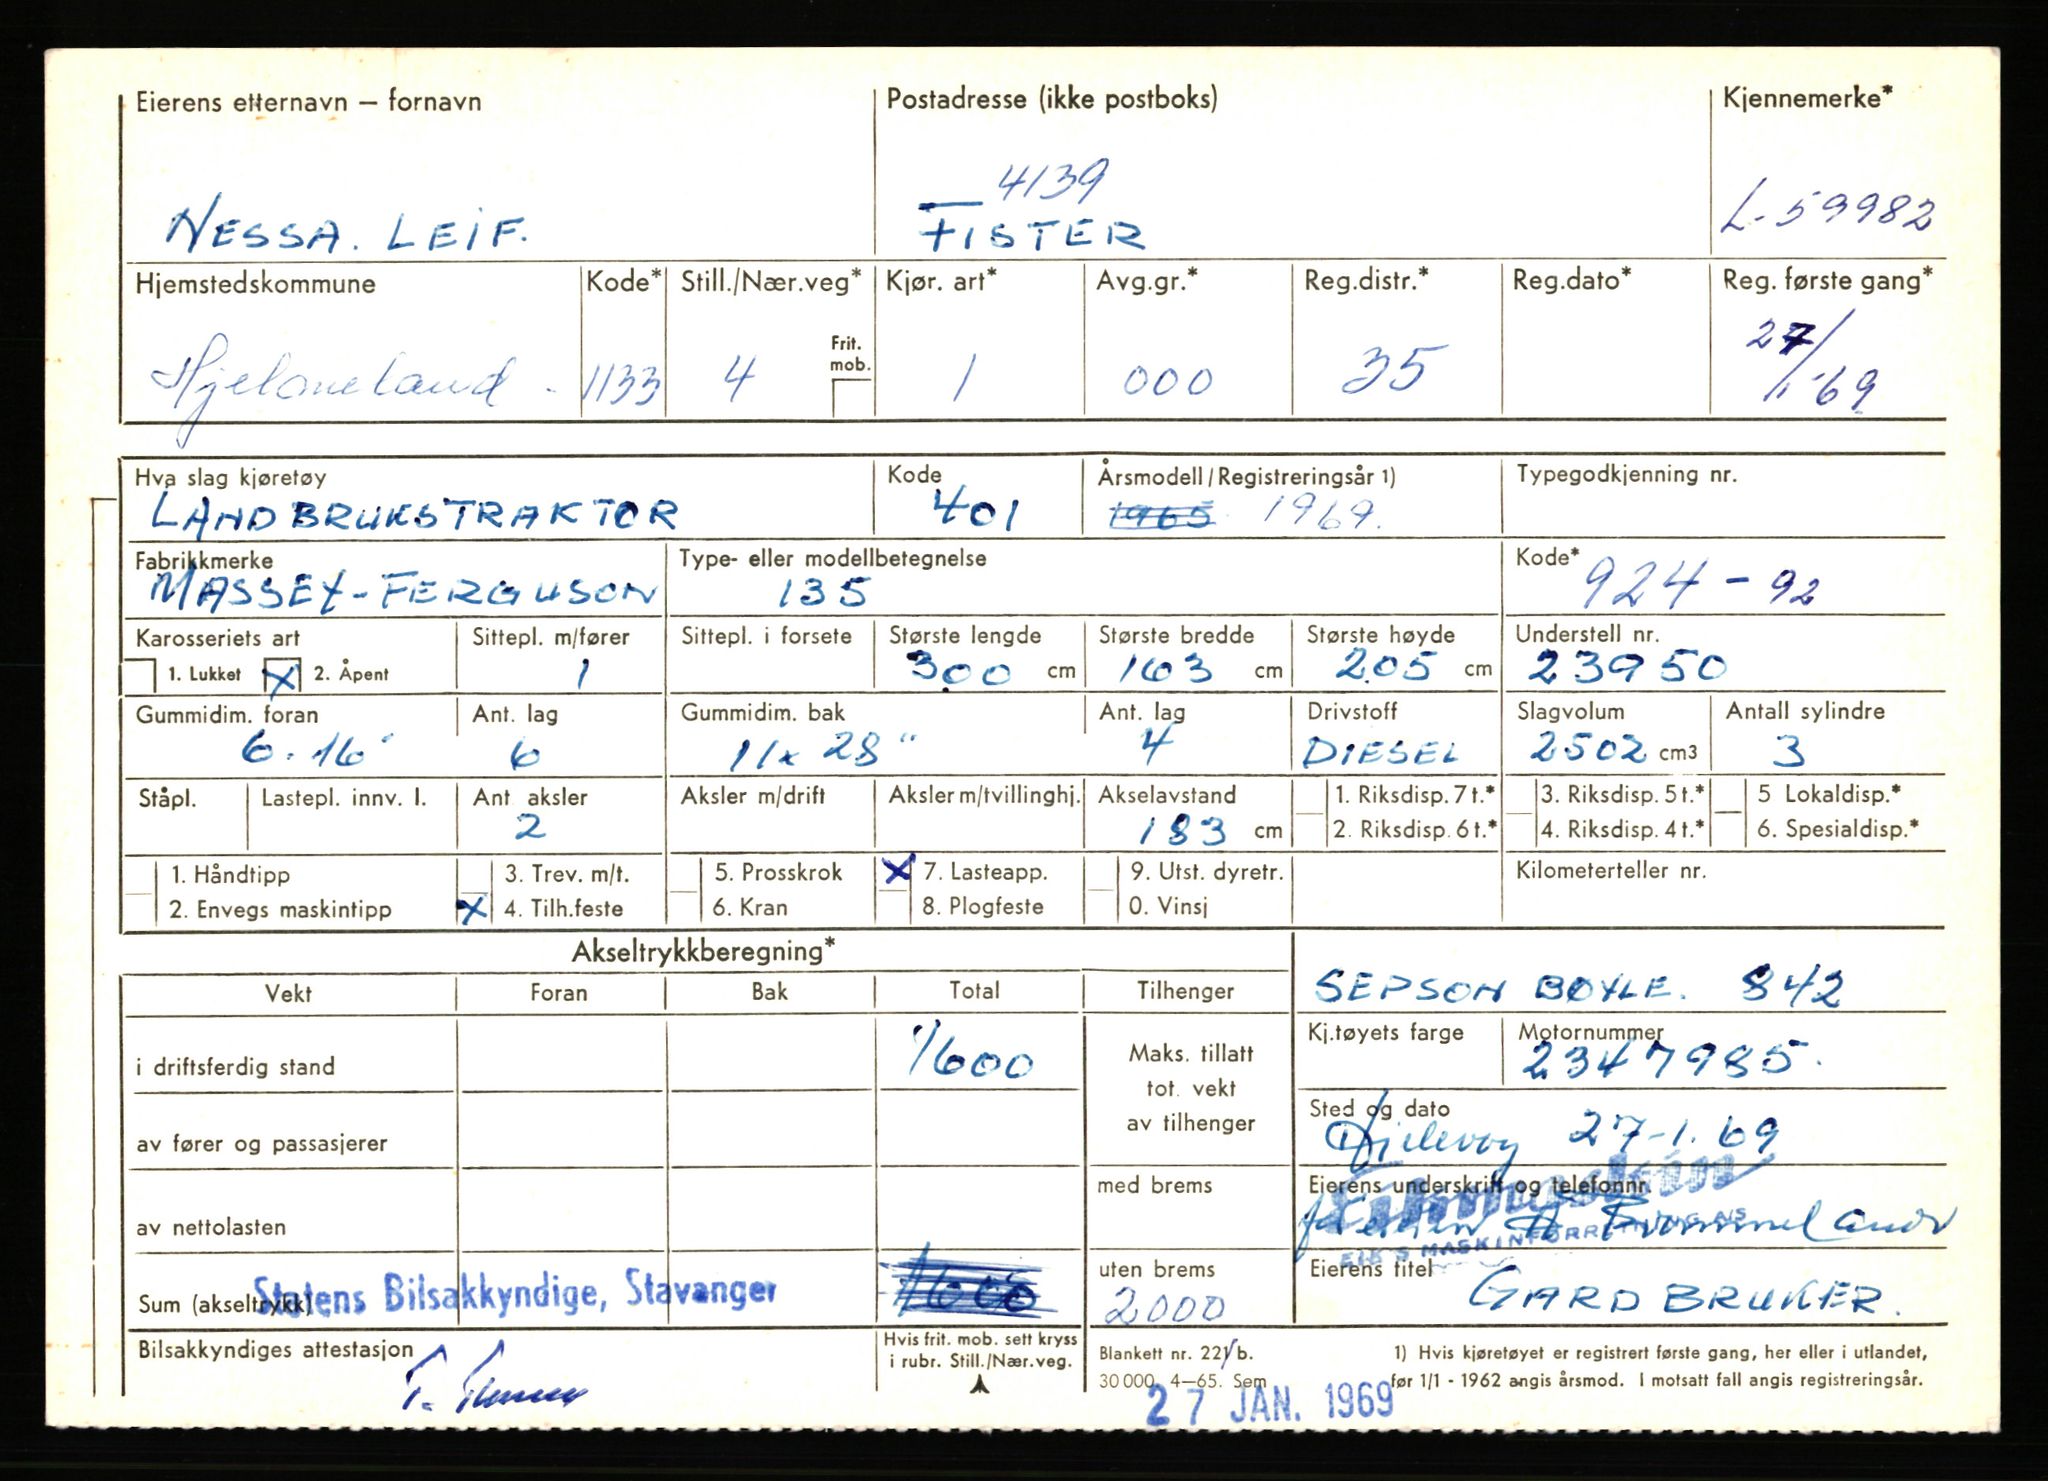 Eierens etternavn – fornavn Postadresse (ikke postboks) Kjennemerke*
4139
NESSA. LEIF. FISTER L-59982
Hjemstedskommune Kode* Still./Nær.veg* Kjør. art* Avg.gr.* Reg.distr.* Reg.dato* Reg. første gang*
Frit. mob.
Hjelmeland. 1133 4 1 000 35 27/1-69
Hva slag kjøretøy Kode Årsmodell/Registreringsår 1) Typegodkjenning nr.
LANDBRUKSTRAKTOR 401 1965 1969.
Fabrikkmerke Type- eller modellbetegnelse Kode*
MASSEY-FERGUSON 135 924-92
Karosseriets art Sittepl. m/fører Sittepl. i forsete Største lengde Største bredde Største høyde Understell nr.
1. Lukket X 2. Åpent 1 300 cm 163 cm 205 cm 23950
Gummidim. foran Ant. lag Gummidim. bak Ant. lag Drivstoff Slagvolum Antall sylindre
6.16" 6 11x28" 4 DIESEL 2502 cm3 3
Ståpl. Lastepl. innv. l. Ant. aksler Aksler m/drift Aksler m/tvillinghj. Akselavstand 1. Riksdisp. 7 t.* 3. Riksdisp. 5 t.* 5 Lokaldisp.*
2 183 cm 2. Riksdisp. 6 t.* 4. Riksdisp. 4 t.* 6. Spesialdisp.*
1. Håndtipp 3. Trev. m/t. 5. Prosskrok X 7. Lasteapp. 9. Utst. dyretr. Kilometerteller nr.
2. Envegs maskintipp X 4. Tilh.feste 6. Kran 8. Plogfeste 0. Vinsj
Akseltrykkberegning*
Vekt Foran Bak Total Tilhenger SEPSON BØYLE. 842
Kj.tøyets farge Motornummer
i driftsferdig stand 1600 Maks. tillatt tot. vekt av tilhenger 2347985.
Sted og dato
av fører og passasjerer 27-1.69
med brems Eierens underskrift og telefonnr.
av nettolasten
EIK'S MASKINFORRETNING A/S
uten brems Eierens titel
Sum (akseltrykk) Statens Bilsakkyndige, Stavanger 1600 2000 GARDBRUKER.
Bilsakkyndiges attestasjon Hvis frit. mob. sett kryss i rubr. Still./Nær.veg. Blankett nr. 221/b. 1) Hvis kjøretøyet er registrert første gang, her eller i utlandet,
30 000. 4–65. Sem før 1/1 - 1962 angis årsmod. I motsatt fall angis registreringsår.
27 JAN. 1969